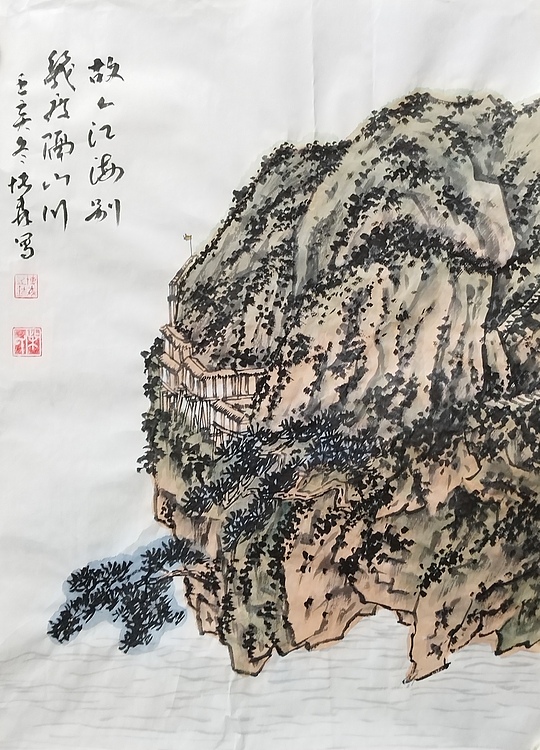 故人江海别
幾度隔山川
壬寅冬培森写